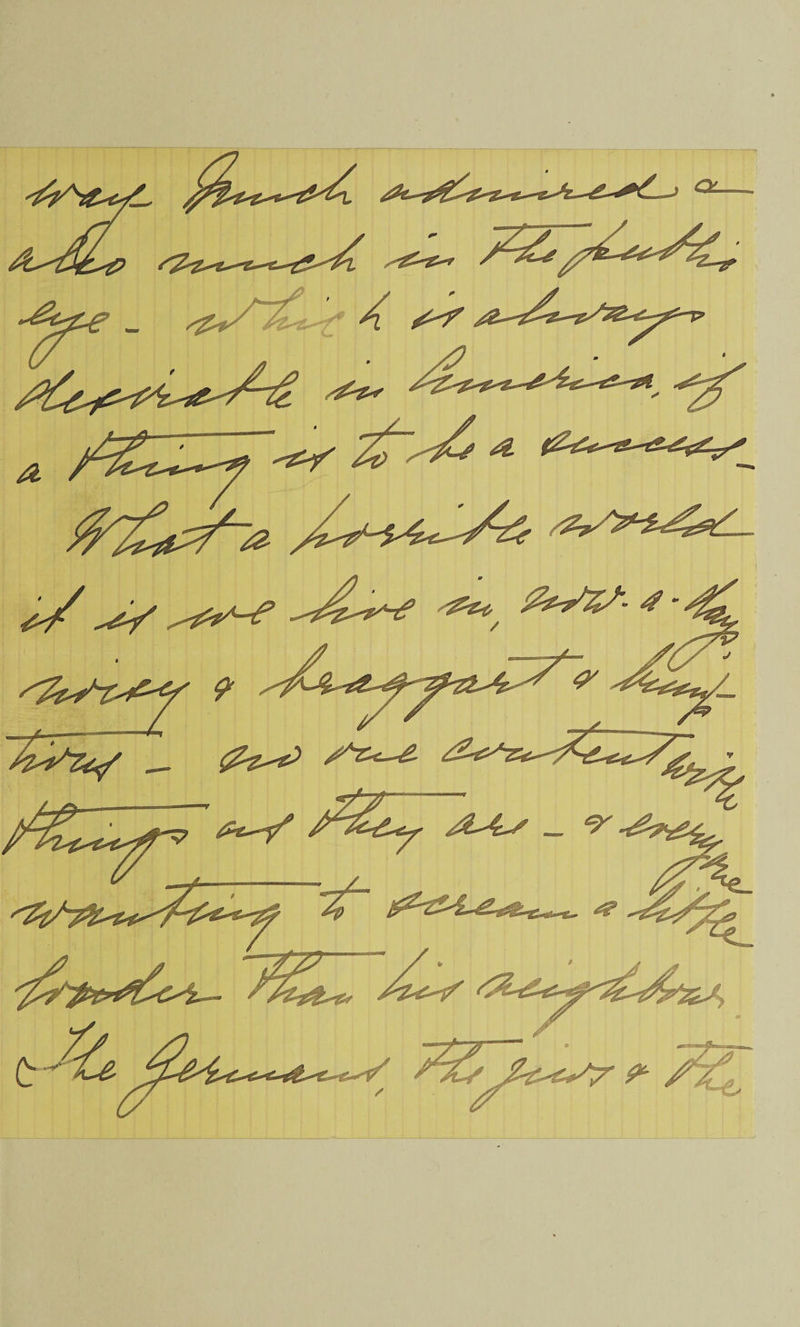 way much admired &
also much in the public
eye - which is always
desirable in America, if
a thing is to be a success_
What a horrible world
it is we live in, now-a-days
noisy & braggart & bump-
tious - no one content with
things as they are - & every one
wanting to scream a little
louder than his neighbour.
The Germans, the Jews & the